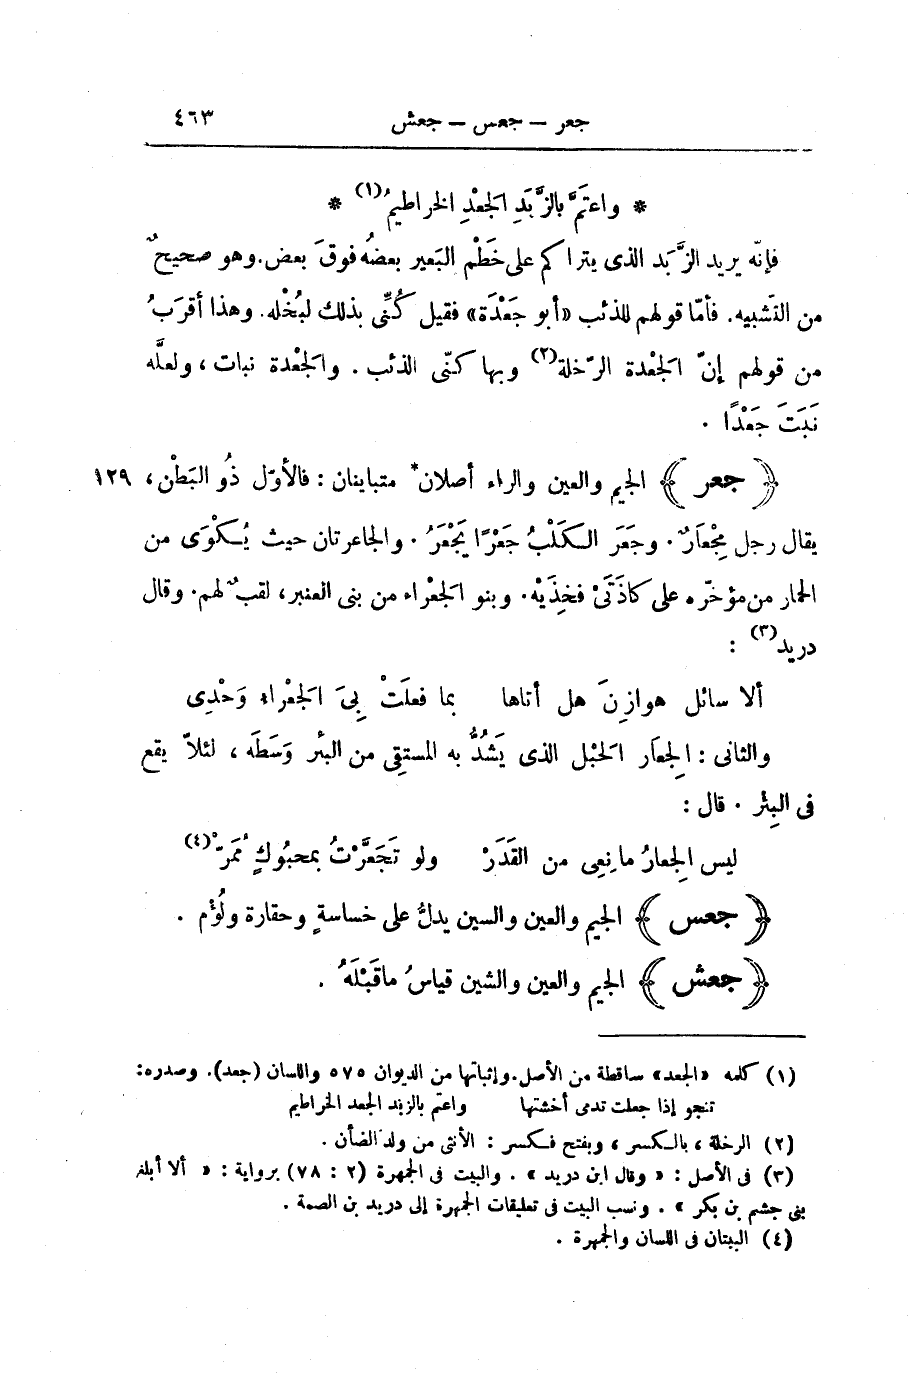 جعر – جعس – جعش ٤٦٣
* واعتَمَّ بالزَّبَدِ الجَعْدِ الخراطيمُ (١) *
فإنّه يريد الزَّبَد الذى يتراكم على خَطْم البَعير بعضُه فوقَ بعض. وهو صحيحٌ
من التَّشبيه. فأمّا قولهم للذئب «أبو جَعْدَة» فقيل كُنِّى بذلك لبُخْله. وهذا أقرَبُ
من قولهم إنّ الجَعْدة الرّخلة (٢) وبها كنّى الذئب . والجَعْدة نبات ، ولعلَّه
نَبَتَ جَعْدًا .
﴿ جعر ﴾ الجيم والعين والراء أصلان* متباينان : فالأوّل ذُو البَطْن ، ١٢٩
يقال رجل مِجْعَارٌ . وجَعَرَ الكَلْبُ جَعْرًا يَجْعَرُ . والجاعرتان حيث يُكْوَى من
الحمار من مؤخّره على كاذَتَىْ فخذَيْه . وبنو الجَعْراء من بنى العنبر ، لقبٌ لهم . وقال
دريد (٣) :
ألا سائل هوازِنَ هل أتاها بما فعلَتْ بِىَ الجَعْراء وَحْدِى
والثانى : الجِعَار الحَبْل الذى يَشُدُّ به المستقِى من البئر وَسَطَه ، لئلاّ يقع
فى البِئر . قال :
ليس الجِعارُ مانِعِى من القَدَرْ ولو تَجَعَّرْتُ بمحبُوكٍ مُمَرّْ (٤)
﴿ جعس ﴾ الجيم والعين والسين يدلُّ على خساسةٍ وحقارة ولُؤْم .
﴿ جعش ﴾ الجيم والعين والشين قياسُ ماقَبْلَهُ .
(١) كلمه «الجعد» ساقطة من الأصل. وإثباتها من الديوان ٥٧٥ واللسان (جعد). وصدره:
تنجو إذا جعلت تدمى أخشتها واعتم بالزبد الجعد الخراطيم
(٢) الرخلة ، بالكسر ، وبفتح فكسر : الأنثى من ولد الضأن .
(٣) فى الأصل : « وقال ابن دريد » . والبيت فى الجمهرة (٢ : ٧٨) برواية : « ألا أبلغ
بنى جشم بن بكر » . ونسب البيت فى تعليقات الجمهرة إلى دريد بن الصمة .
(٤) البيتان فى اللسان والجمهرة .